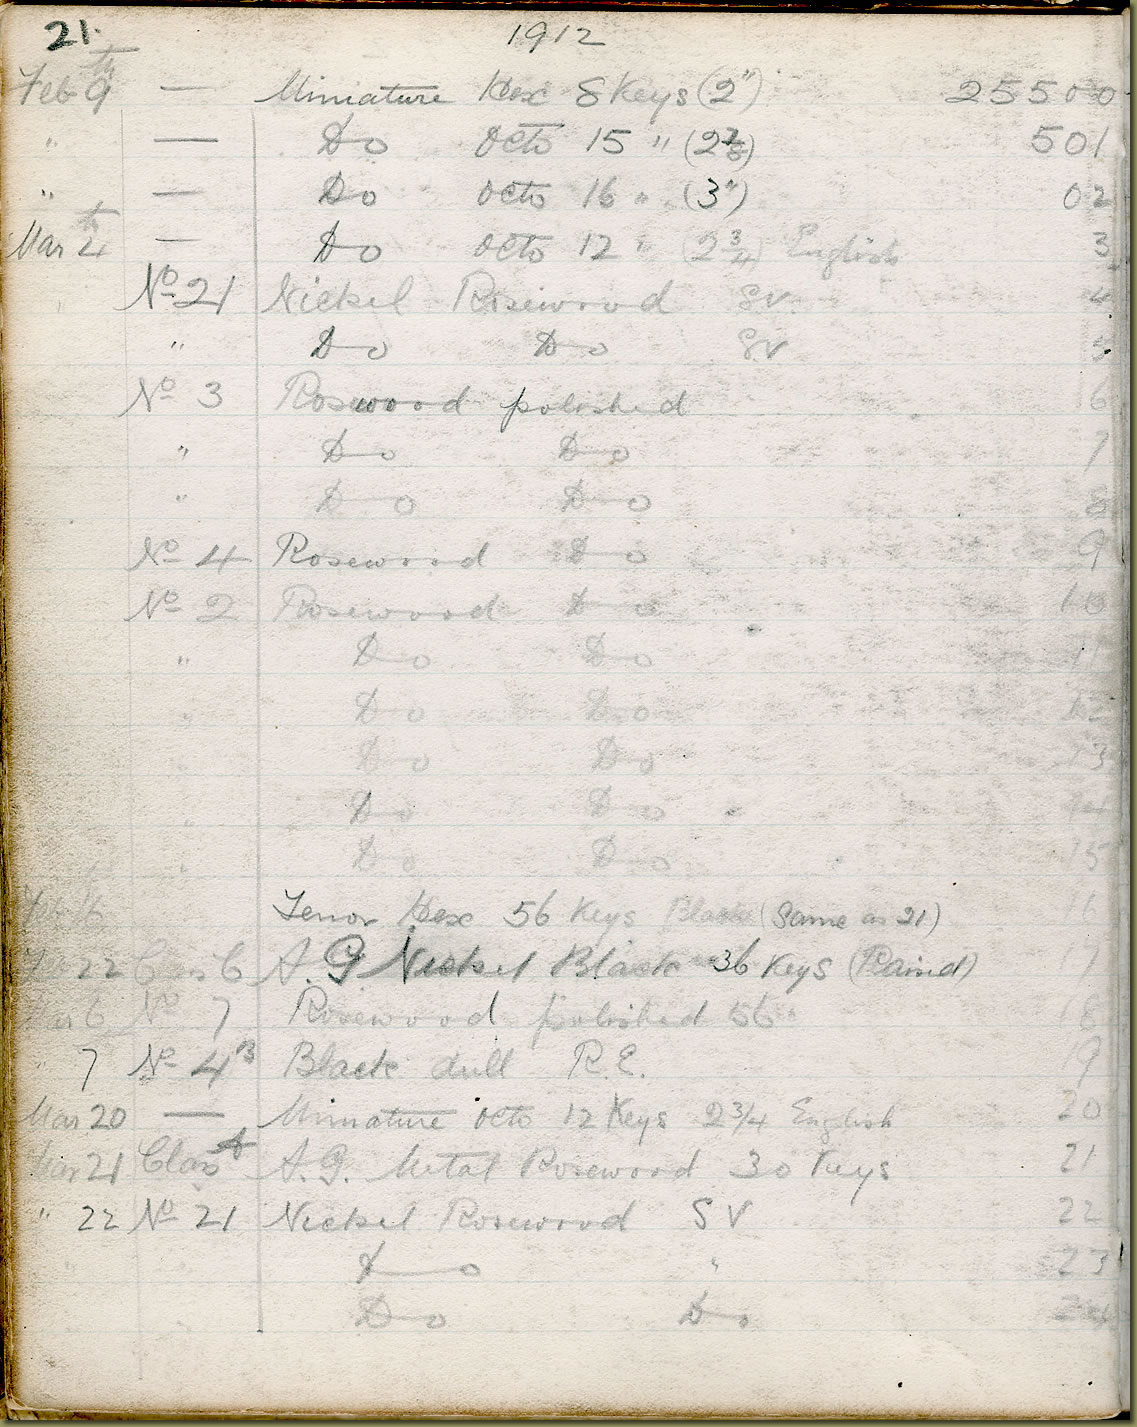 21. 1912
Feb 9th — Miniature Hex 8 Keys (2") 25500
" — Do Octo 15 " (2 7/8) 501
" — Do Octo 16 " (3") 02
Mar 4th — Do Octo 12 " (2 3/4) English 3
No 21 Nickel Rosewood SV 4
" Do Do SV 5
No 3 Rosewood polished 6
" Do Do 7
" Do Do 8
No 4 Rosewood Do 9
No 2 Rosewood Do 10
" Do Do 11
" Do Do 12
" Do Do 13
" Do Do 14
" Do Do 15
Feb 16 Tenor Hex 56 Keys Black (Same as 21) 16
22 Class C A.G Nickel Black 36 Keys (Raised) 17
Mar 6 No 7 Rosewood polished 56 18
" 7 No 4B Black dull R.E. 19
Mar 20 — Miniature Octo 12 Keys 2 3/4 English 20
Mar 21 Class A A.G. Metal Rosewood 30 Keys 21
" 22 No 21 Nickel Rosewood SV 22
" Do " 23
" Do Do 24